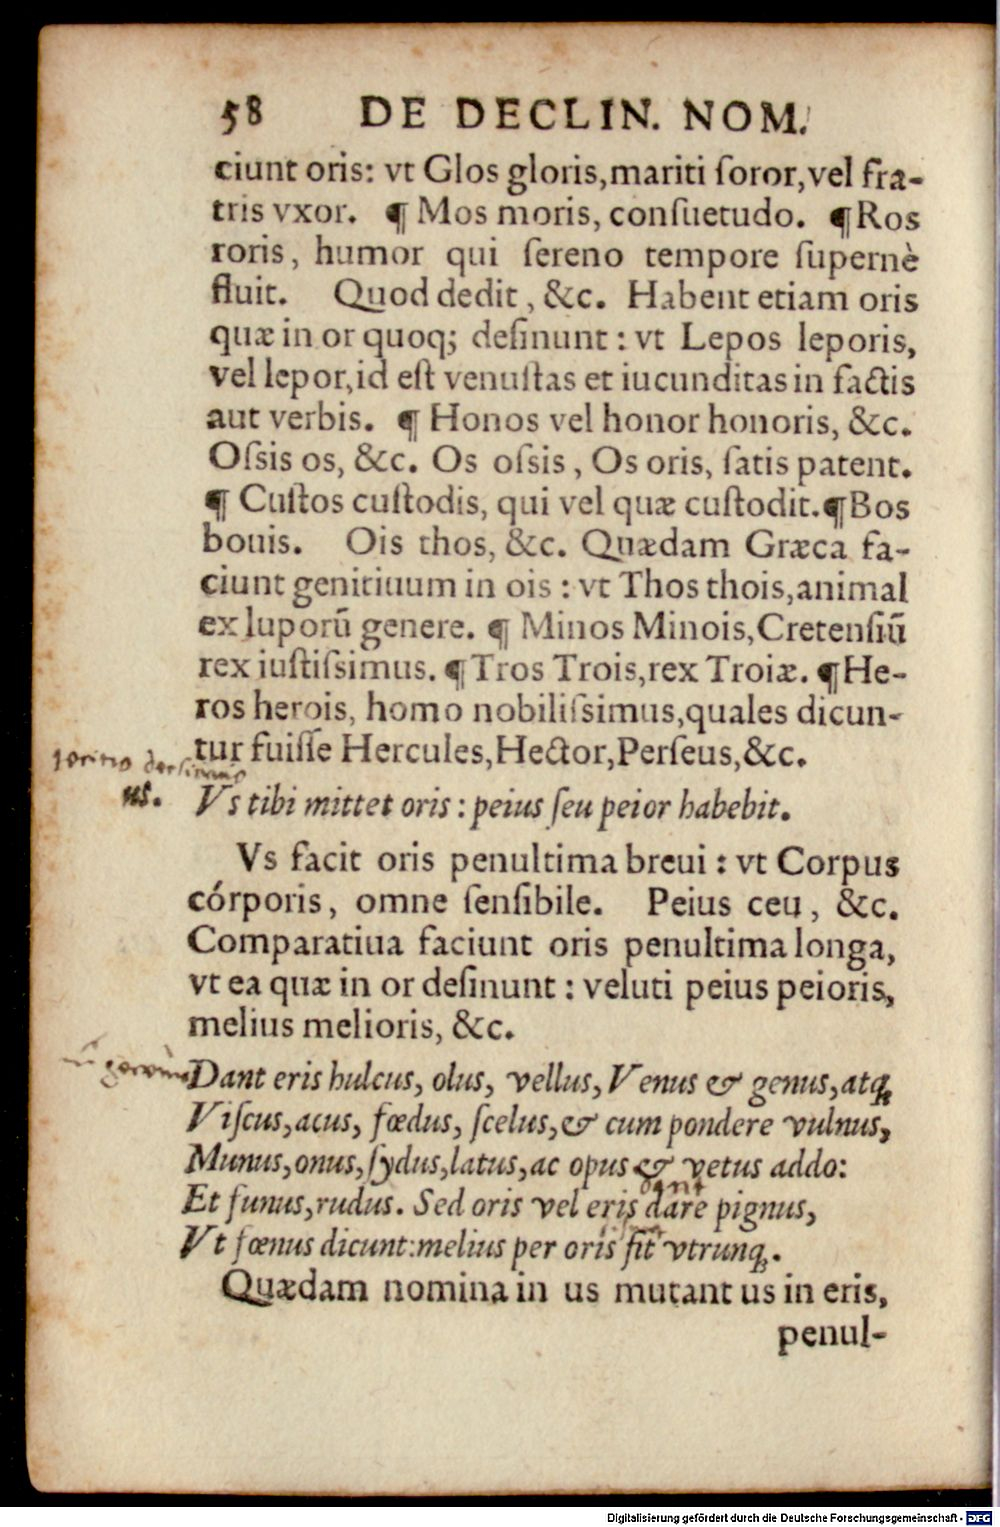 58 DE DECLIN. NOM.
ciunt oris: vt Glos gloris,mariti ſoror,vel fra-
tris vxor. ¶ Mos moris, conſuetudo. ¶Ros
roris, humor qui ſereno tempore ſupernè
fluit. Quod dedit, &c. Habent etiam oris
quæ in or quoq; deſinunt: vt Lepos leporis,
vel lepor,id eſt venuſtas et iucunditas in factis
aut verbis. ¶ Honos vel honor honoris, &c.
Oſsis os, &c. Os oſsis, Os oris, ſatis patent.
¶ Cuſtos cuſtodis, qui vel quæ cuſtodit.¶Bos
bouis. Ois thos, &c. Quædam Græca fa-
ciunt genitiuum in ois: vt Thos thois,animal
ex luporū genere. ¶ Minos Minois,Cretenſiū
rex iuſtiſsimus. ¶Tros Trois,rex Troiæ. ¶He-
ros herois, homo nobiliſsimus,quales dicun-
tur fuiſſe Hercules,Hector,Perſeus,&c.
us.
Vs tibi mittet oris: peius ſeu peior habebit.
Vs facit oris penultima breui: vt Corpus
córporis, omne ſenſibile. Peius ceu, &c.
Comparatiua faciunt oris penultima longa,
vt ea quæ in or deſinunt: veluti peius peioris,
melius melioris, &c.
Dant eris hulcus, olus, vellus, Venus & genus,atq;
Viſcus,acus, fœdus, ſcelus,& cum pondere vulnus,
Munus,onus,ſydus,latus,ac opus & vetus addo:
dant
Et funus,rudus. Sed oris vel eris dare pignus,
Vt fœnus dicunt:melius per oris fit vtrunq;.
Quædam nomina in us mutant us in eris,
penul-
Digitalisierung gefördert durch die Deutsche Forschungsgemeinschaft - DFG